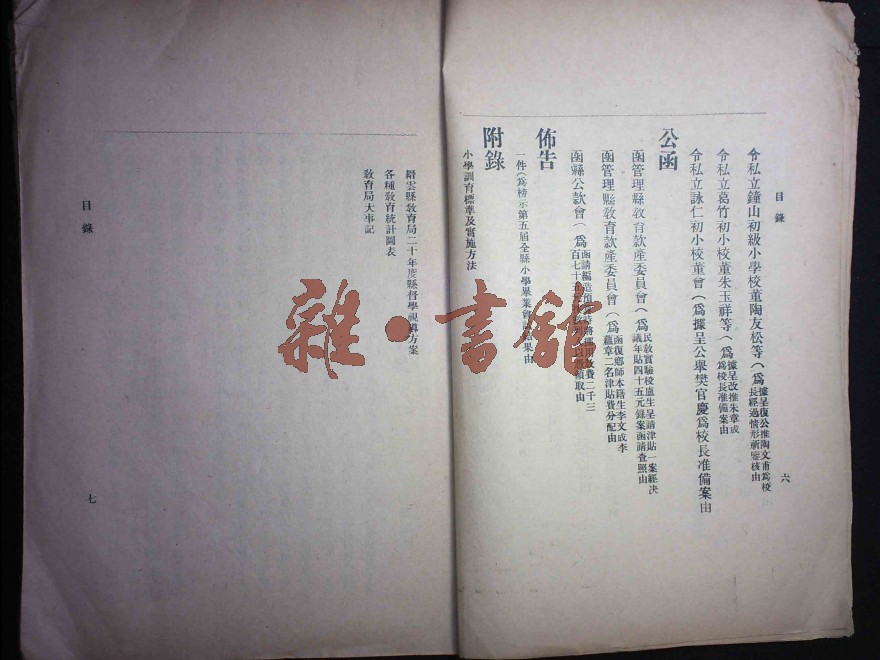 目錄
六
令私立鐘山初級小學校董陶友松等(爲據呈復公推陶文甫爲校長經過情形祈鑒核由
令私立葛竹初小校董朱玉祥等(爲據呈改推朱章成爲校長准備案由
令私立詠仁初小校董會(爲據呈公舉樊官慶爲校長准備案由
公函
函管理縣教育款產委員會(爲民敎實驗校盧生呈請津貼一案經決議年貼四十五元錄案函請查照由
函管理縣敎育款產委員會(爲函復鄉師本籍生李文成李蘊章二名津貼費分配由
函縣公款會(爲函請編造預 費二千三百七十五元 領取由
佈告
一件(爲榜示第五屆全縣小學畢業會 結果由
附錄
小學訓育標準及實施方法
縉雲縣敎育局二十年度縣督學視導方案
各種敎育統計圖表
敎育局大事記
目錄
七
雜·書館